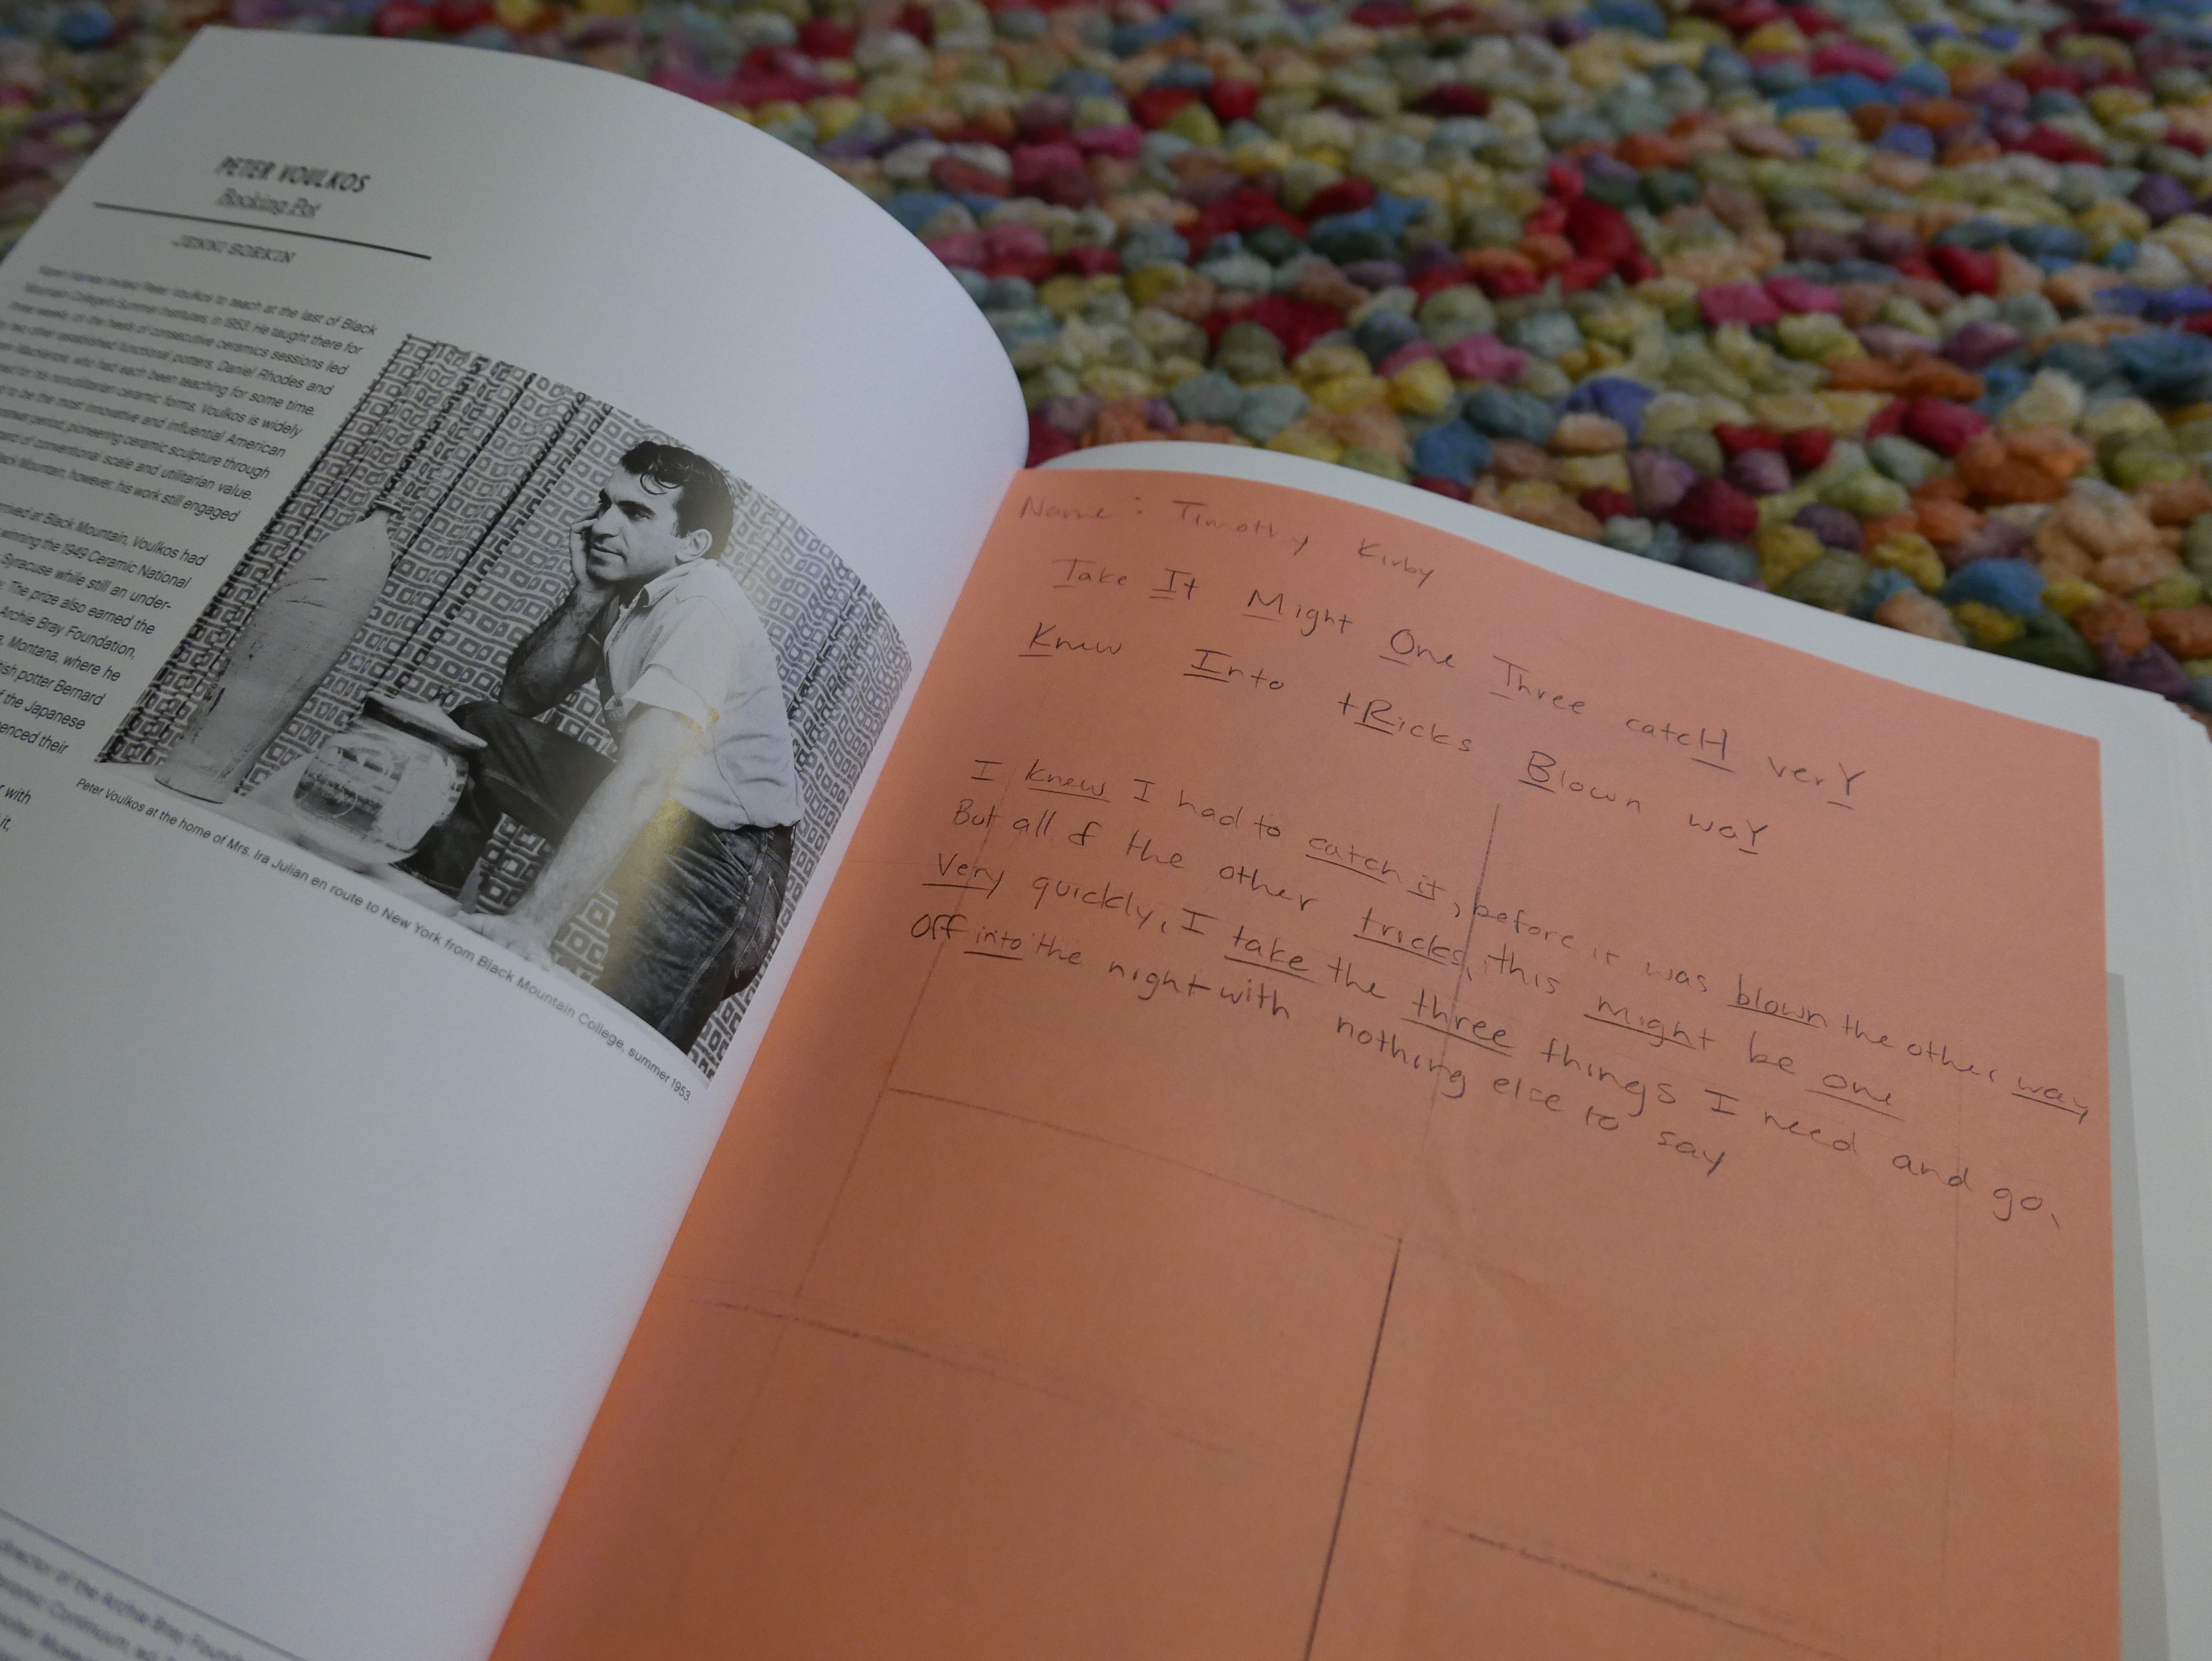 PETER VOULKOS
Rocking Pot
JENNI SORKIN
invited Peter Voulkos to teach at the last of Black
Mountain College's Summer Institutes, in 1953. He taught there for
three weeks, on the heels of consecutive ceramics sessions led
two other established functional potters, Daniel Rhodes and
MacKenzie, who had each been teaching for some time.
for his nonutilitarian ceramic forms, Voulkos is widely
to be the most innovative and influential American
postwar period, pioneering ceramic sculpture through
of conventional scale and utilitarian value.
Mountain, however, his work still engaged
arrived at Black Mountain, Voulkos had
winning the 1949 Ceramic National
Syracuse while still an under-
The prize also earned the
Archie Bray Foundation,
Montana, where he
potter Bernard
the Japanese
their
with
it,
Peter Voulkos at the home of Mrs. Ira Julian en route to New York from Black Mountain College, summer 1953.
director of the Archie Bray
Ceramic Continuum
Name: Timothy Kirby
Take It Might One Three catcH verY
Knew Into tRicks Blown waY
I knew I had to catch it, before it was blown the other way
But all of the other tricks, this might be one
Very quickly, I take the three things I need and go,
Off into the night with nothing else to say